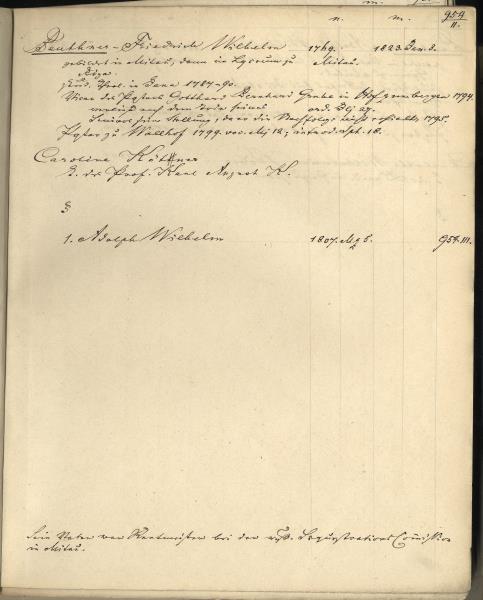 n. m. 954
II.
Beuthner - Friedrich Wilhelm 1769. 1823. Jan. 3.
gebildet in Mitau, dann im Lyceum zu Mitau.
Riga.
stud. theol. in Jena 1787-90.
Vicar des Pastors Gotthard Bernhard Grube in 1794.
verließ nach dem Tode seines
seine Stellung, da er die Nachfolge nicht erhielt, 1795.
Pastor zu Wallhof 1799. voc. Mj 12; introd. Spt. 18.
Caroline Küttner
T. des Prof. Karl August K.
§
1. Adolph Wilhelm 1807. 5. 954. III.
Sein Vater war Rentmeister bei der russ. Sequestrations Comission
in Mitau.